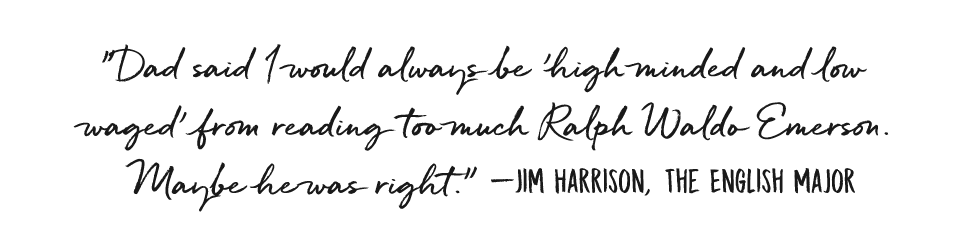 "Dad said I would always be 'high minded and low
waged' from reading too much Ralph Waldo Emerson.
Maybe he was right." —JIM HARRISON, THE ENGLISH MAJOR